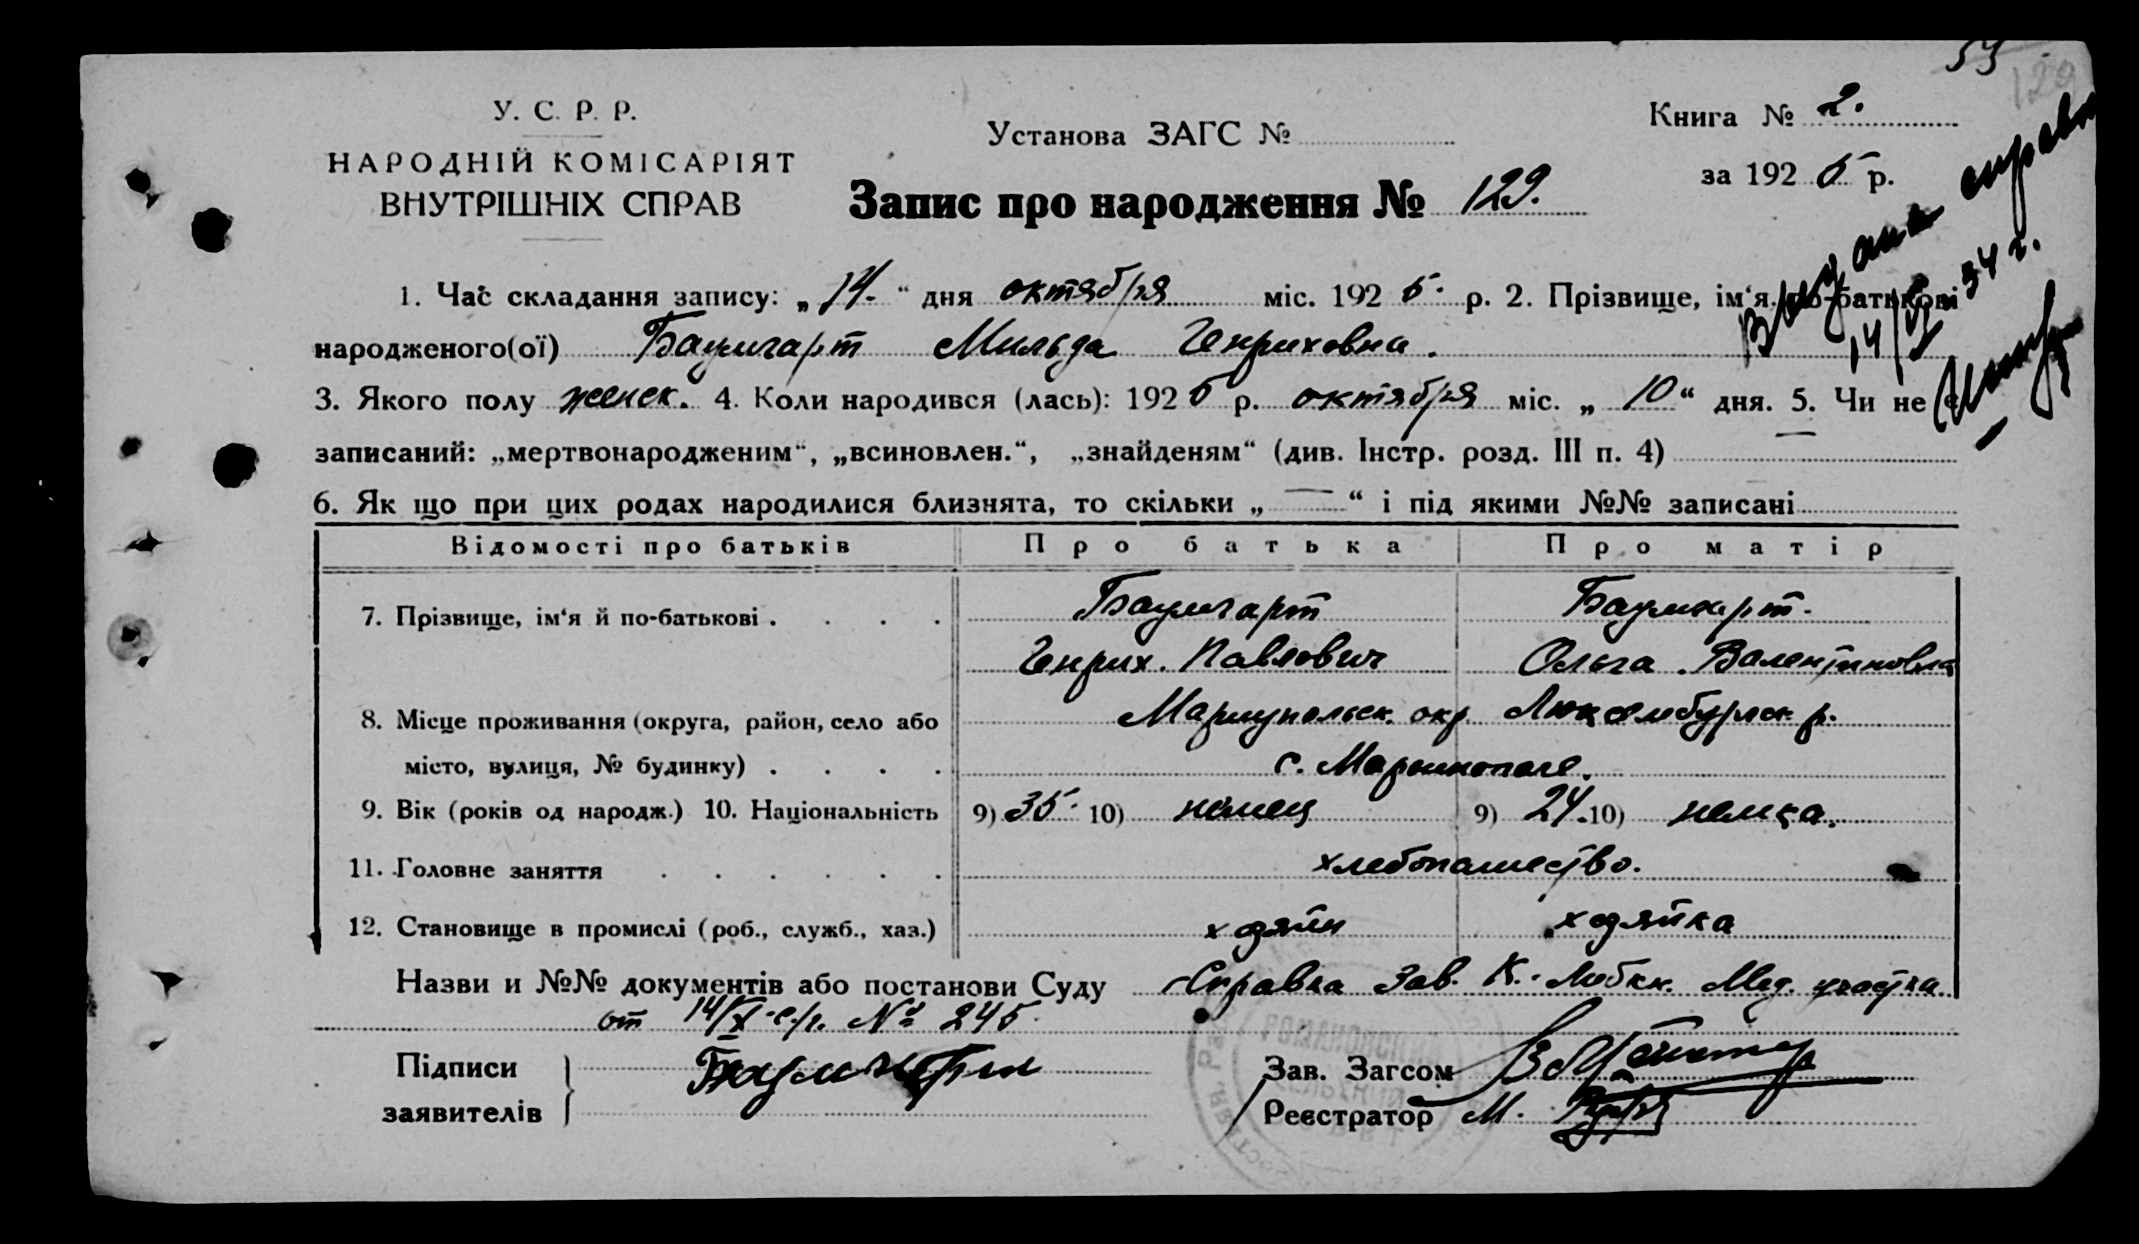 59
129
У. С. Р. Р.
НАРОДНІЙ КОМІСАРІЯТ
ВНУТРІШНІХ СПРАВ
Установа ЗАГС №
Книга № 2.
за 1925 р.
Запис про народження № 129.
Выдана справка
14/ 34 г.
1. Час складання запису: „14.“ дня октября міс. 1925. р. 2. Прізвище, ім'я, по-батькові
народженого(ої) Баумгарт Мильда Генриховна.
3. Якого полу женск. 4. Коли народився (лась): 1925 р. октября міс. „10“ дня. 5. Чи не є
записаний: „мертвонародженим“, „всиновлен.“, „знайденям“ (див. Інстр. розд. III п. 4) —
6. Як що при цих родах народилися близнята, то скільки „—“ і під якими №№ записані
Відомості про батьків Про батька Про матір
7. Прізвище, ім'я й по-батькові . . . . Баумгарт Баумгарт.
Генрих. Павлович Ольга Валентиновна
8. Місце проживання (округа, район, село або Мариупольск. окр Люксембургск. р.
місто, вулиця, № будинку) . . . . с. Мариинополе.
9. Вік (років од народж.) 10. Національність 9) 35. 10) немец 9) 24. 10) немка.
11. Головне заняття . . . . . . хлебопашество.
12. Становище в промислі (роб., служб., хаз.) хозяин хозяйка
Назви и №№ документів або постанови Суду Справка Зав. К. Мед. участка
от 14/X с/г. № 245
Підписи Баумгарт
заявителів
Зав. Загсом
Реєстратор М.